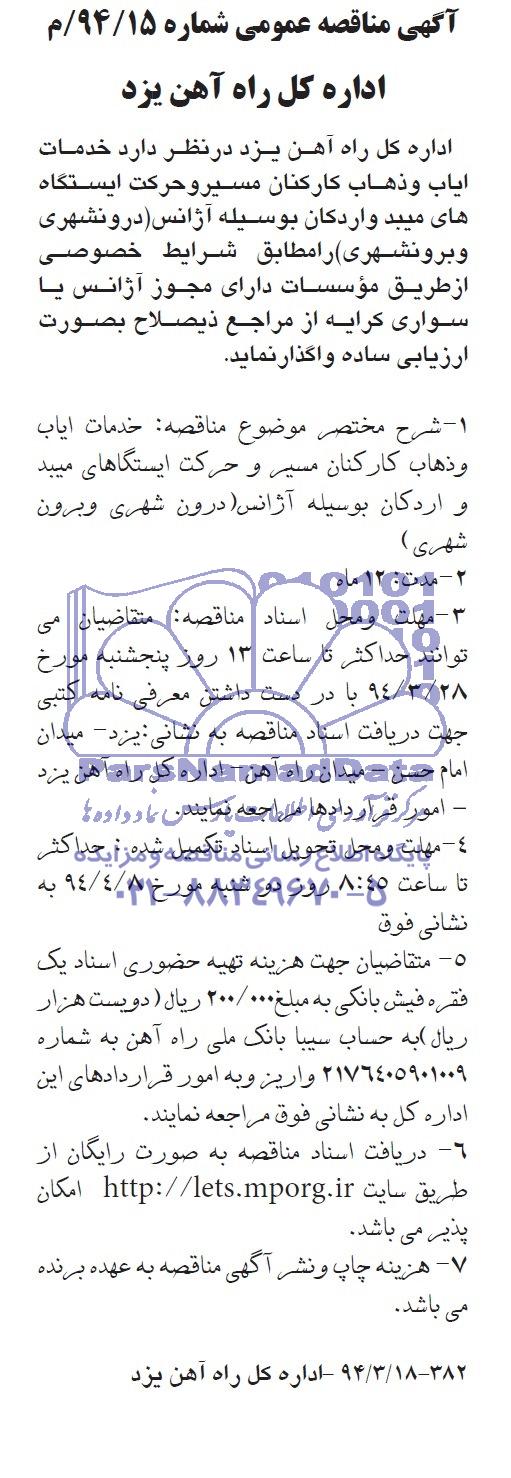 آگهی مناقصه عمومی شماره ۹۴/۱۵/م
اداره کل راه آهن یزد
اداره کل راه آهـن یـزد درنظـر دارد خدمـات
ایاب وذهـاب کارکنان مسـیروحرکت ایسـتگاه
های میبد واردکان بوسـیله آژانس(درونشهری
وبرونشـهری)رامطابق شـرایط خصوصـی
ازطریـق مؤسسـات دارای مجـوز آژانـس یـا
سـواری کرایـه از مراجـع ذیصـلاح بصـورت
ارزیابی ساده واگذارنماید.
۱-شرح مختصر موضوع مناقصه: خدمات ایاب
وذهاب کارکنان مسیر و حرکت ایستگاهای میبد
و اردکان بوسیله آژانس(درون شهری وبرون
شهری)
۲-مدت: ۱۲ ماه
۳-مهلت ومحل اسناد مناقصه: متقاضیان می
توانند حداکثر تا ساعت ۱۳ روز پنجشنبه مورخ
۹۴/۳/۲۸ با در دست داشتن معرفی نامه کتبی
جهت دریافت اسناد مناقصه به نشانی:یزد- میدان
امام حسن – میدان راه آهن- اداره کل راه آهن یزد
– امور قراردادها مراجعه نمایند.
۴-مهلت ومحل تحویل اسناد تکمیل شده : حداکثر
تا ساعت ۸:۴۵ روز دو شنبه مورخ ۹۴/۴/۸ به
نشانی فوق
۵- متقاضیان جهت هزینه تهیه حضوری اسناد یک
فقره فیش بانکی به مبلغ۲۰۰/۰۰۰ ریال(دویست هزار
ریال)به حساب سیبا بانک ملی راه آهن به شماره
۲۱۷۶۴۰۵۹۰۱۰۰۹ واریز وبه امور قراردادهای این
اداره کل به نشانی فوق مراجعه نمایند.
۶- دریافت اسناد مناقصه به صورت رایگان از
طریق سایت http://lets.mporg.ir امکان
پذیر می باشد.
۷- هزینه چاپ ونشر آگهی مناقصه به عهده برنده
می باشد.
۹۴/۳/۱۸-۳۸۲ –اداره کل راه آهن یزد
ParsNamadData
پایگاه اطلاع رسانی مناقصه و مزایده
۰۲۱-۸۸۳۴۹۶۷۰-۵